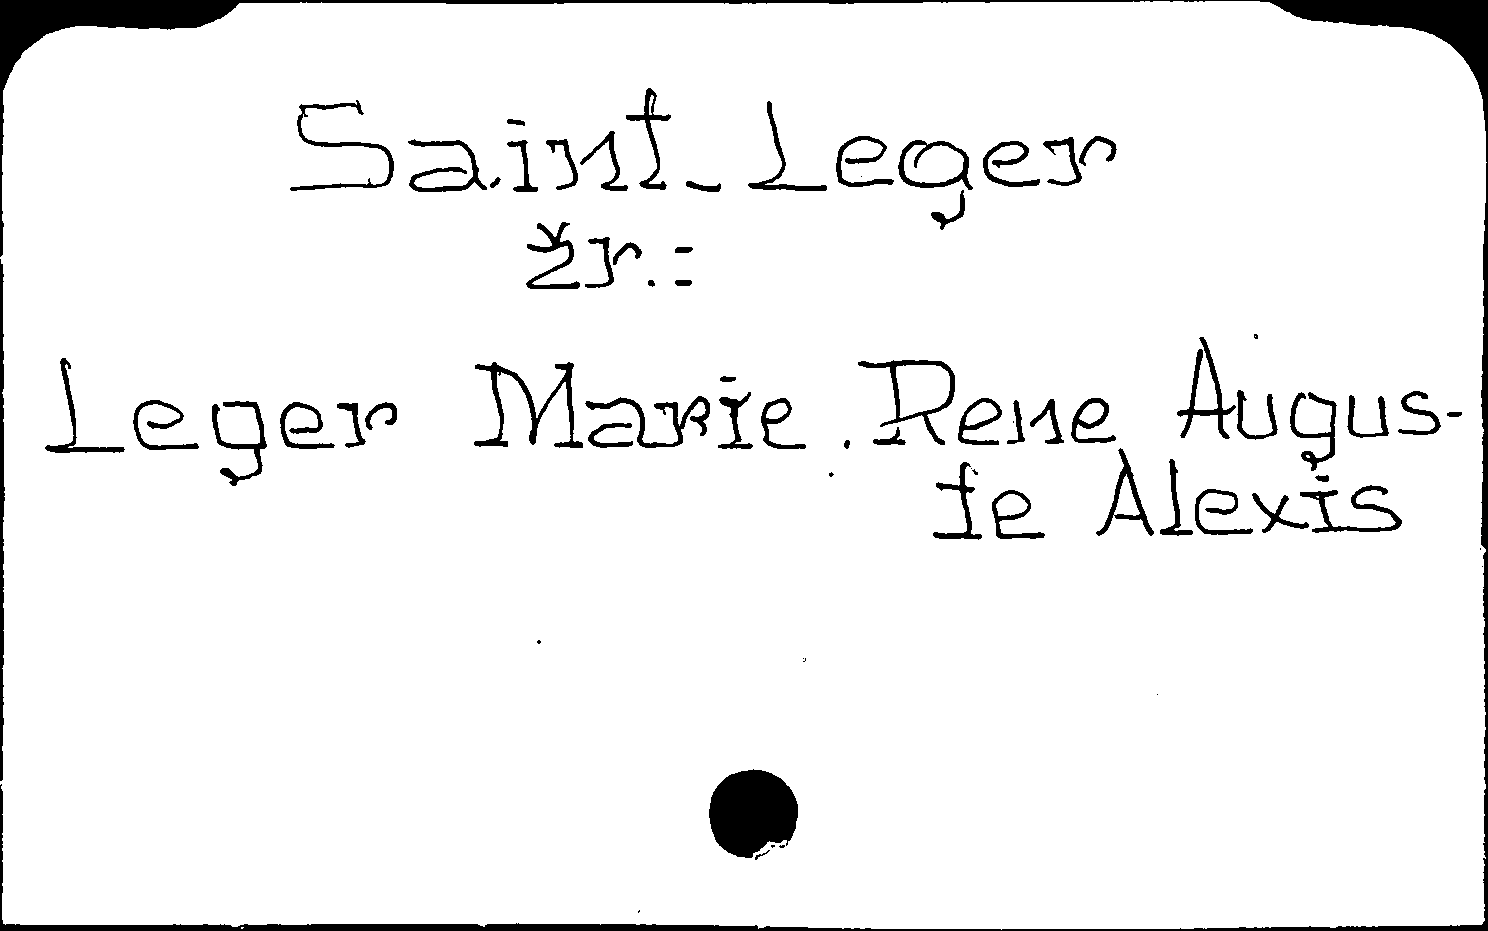 Saint-Leger
žr.:
Leger Marie. Rene Augus-
te Alexis